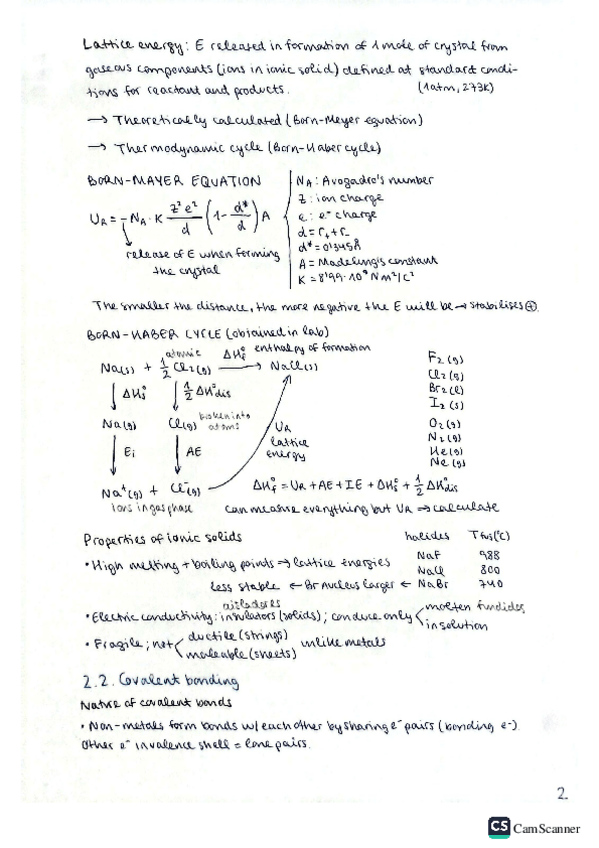 Lattice energy: E released in formation of 1 mole of crystal from
gaseous components (ions in ionic solid) defined at standard condi-
tions for reactant and products. (1atm, 273K)
→ Theoretically calculated (Born-Meyer equation)
→ Thermodynamic cycle (Born-Haber cycle)
BORN-MAYER EQUATION
U_R = -N_A · K Z²e²/d (1 - d*/d) A
release of E when forming
the crystal
N_A: Avogadro's number
Z: ion charge
e: e⁻ charge
d = r₊ + r₋
d* = 0'345Å
A = Madeling's constant
K = 8'99·10⁹ Nm²/C²
The smaller the distance, the more negative the E will be → stabilises ⊕.
BORN-HABER CYCLE (obtained in lab)
atomic ΔH_f° enthalpy of formation
Na(s) + 1/2 Cl₂(g) → NaCl(s)
ΔH_s° 1/2 ΔH_dis°
Na(g) Cl(g) broken into
atoms
Ei AE
U_R
lattice
energy
Na⁺(g) + Cl⁻(g)
ions in gas phase
F₂(g)
Cl₂(g)
Br₂(l)
I₂(s)
O₂(g)
N₂(g)
He(g)
Ne(g)
ΔH_f° = U_R + AE + IE + ΔH_s° + 1/2 ΔH_dis°
can measure everything but U_R → calculate
Properties of ionic solids halides T fus(°C)
• High melting + boiling points → lattice energies NaF 988
NaCl 800
less stable ← Br nucleus larger ← NaBr 740
aisladores
• Electric conductivity: insulators (solids); conduce only molten fundidos
in solution
• Fragile; not ductile (strings)
maleable (sheets) unlike metals
2.2. Covalent bonding
Nature of covalent bonds
• Non-metals form bonds w/ each other by sharing e⁻ pairs (bonding e⁻).
Other e⁻ in valence shell = lone pairs.
2.
CS CamScanner